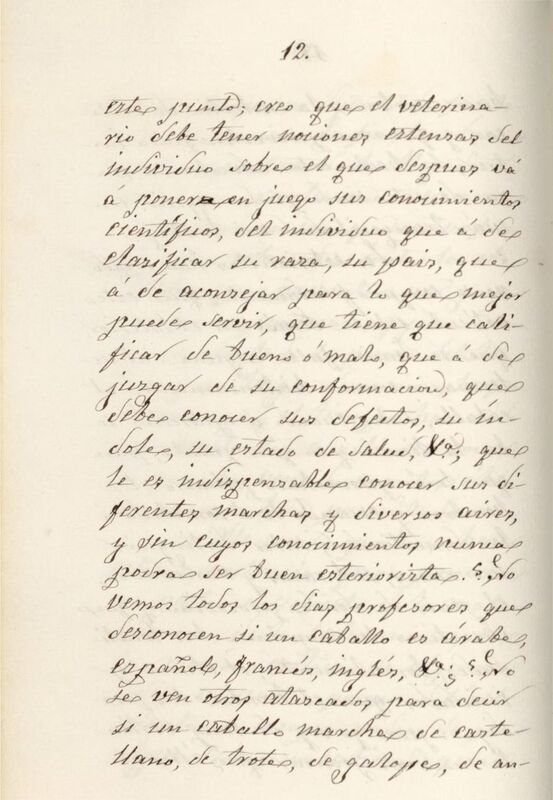 12.
este punto; creo que el veterina-
rio debe tener nociones estensas del
individuo sobre el que despues vá
á poner en juego sus conocimientos
científicos, del individuo que á de
clazificar su raza, su pais, que
á de aconsejar para lo que mejor
puede servir, que tiene que cali-
ficar de bueno ó malo, que á de
juzgar de su conformacion, que
debe conocer sus defectos, su ín-
dole, su estado de salud, &a; que
le es indizpensable conocer sus di-
ferentes marchas y diversos aires,
y sin cuyos conocimientos nunca
podra ser buen esteriorista. ¿No
vemos todos los dias profesores que
desconocen si un caballo es árabe,
español, francés, inglés, &a; ¿No
se ven otros atascados para decir
si un caballo marcha de caste-
llano, de trote, de galope, de an-